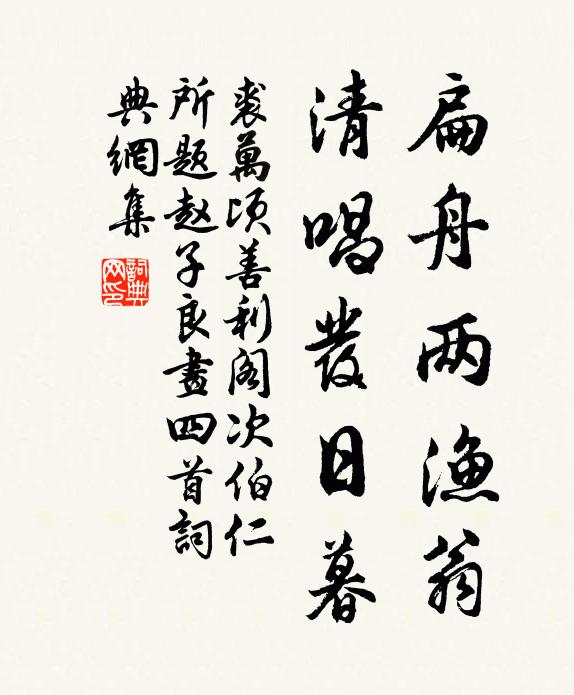 扁舟两漁翁
清唱發日暮
裘萬頃善利阁次伯仁
所题赵子良畫四首詞
典網集
詞典网印